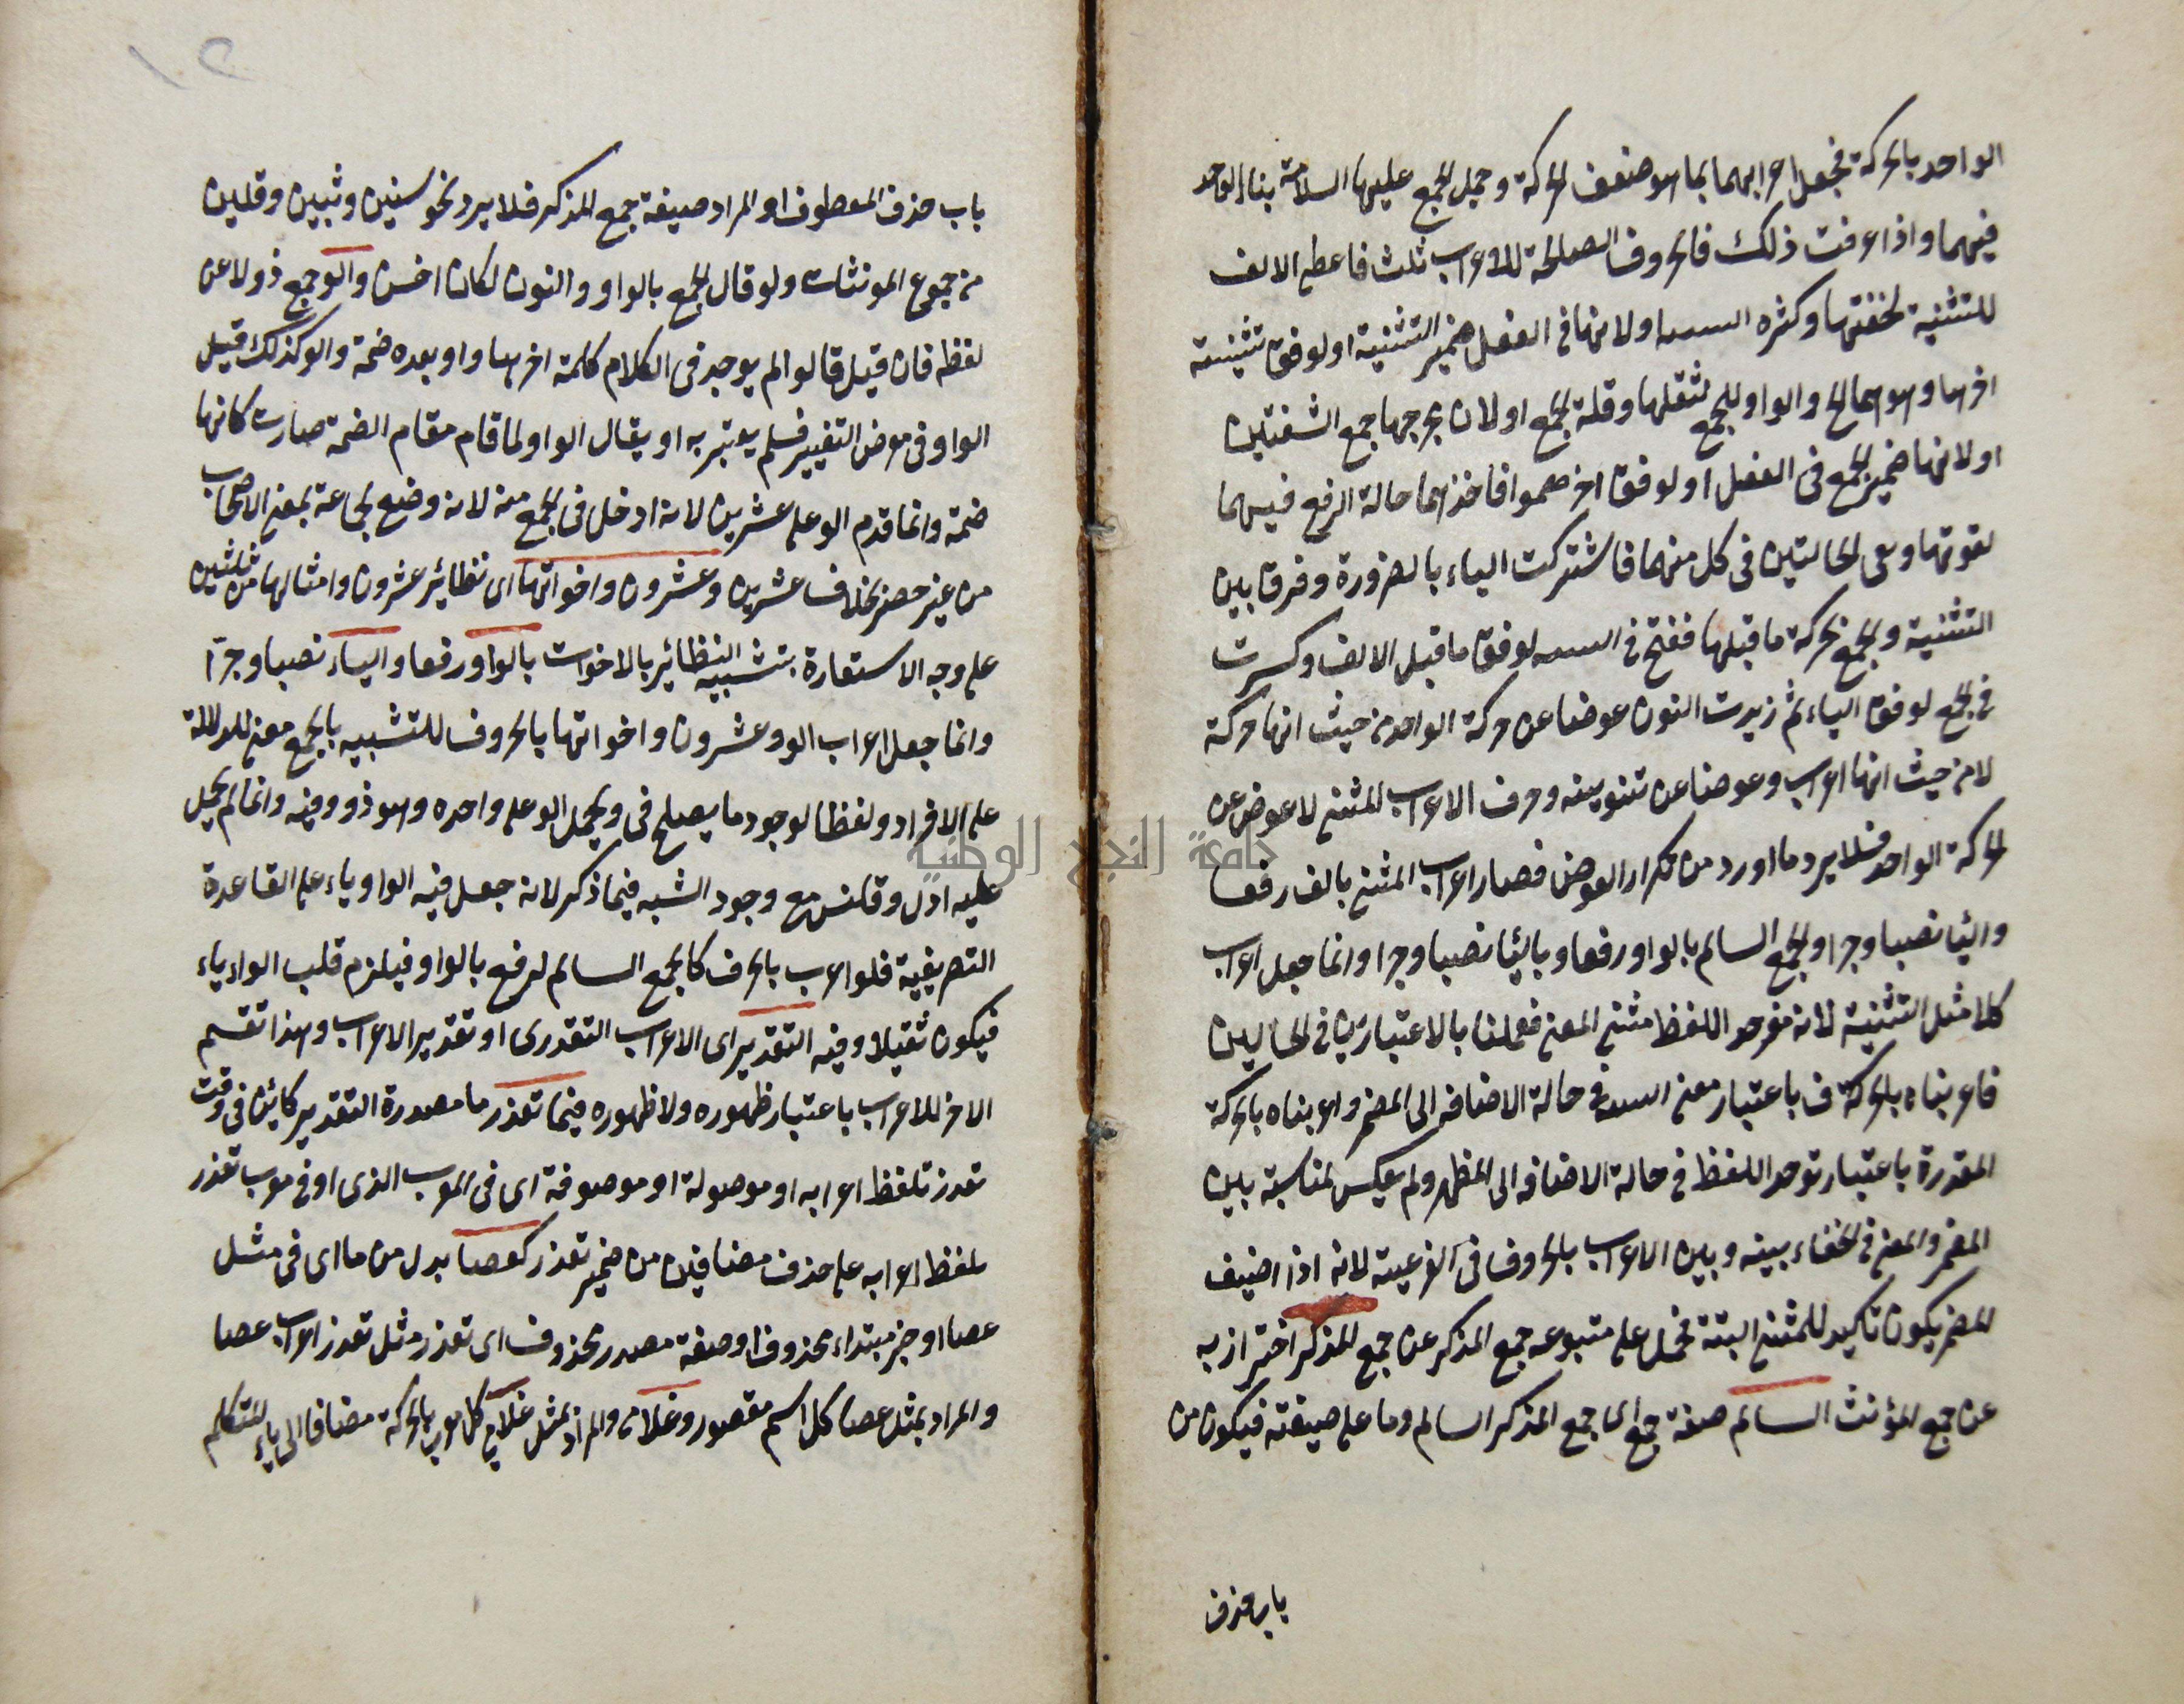 الواحد بالحركة فجعل اعرابهما بما هو ضعف الحركة وحمل الجمع عليها السلامة بناء الواحد
فيهما واذا عرفت ذلك فالحروف الصالحة للاعراب ثلث فاعطى الالف
للتثنية لخفتها وكثره او لانها في الفعل ضمير التثنية او لوفق تثنيته
اخرها وهو هما لخ والواو للجمع لثقلها وقلة الجمع او لان بمخرجها جمع الشفتين
او لانها ضمير الجمع في الفعل او لوفق اخر همموا فاخذهما حالة الرفع فيهما
لقوتها وبقى الحالتين في كل منهما فاشتركت الياء بالضرورة وفرق بين
التثنية والجمع بحركة ما قبلها ففتح في لوفق ما قبل الالف وكسرت
في الجمع لوفق الياء ثم زيدت النون عوضا عن حركة الواحد من حيث انها حركة
لا من حيث انها اعراب وعوضا عن تنوينه وحرف الاعراب المثنى لا عوض عن
الحركة الواحد فلا يرد ما اورد من تكرار العوض فصار اعراب المثنى بالف رفعا
واليا نصبا وجرا والجمع السالم بالواو رفعا وباليا نصبا وجرا وانما جعل اعراب
كلا مثل التثنية لانه مفرد اللفظ مثنى المعنى فعملنا بالاعتبارين في الحالين
فاعربناه بالحركة ف باعتبار معنى في حالة الاضافه الى المضمر واعربناه بالحركة
المقدرة باعتبار توحد اللفظ في حالة الاضافه الى المظهر ولم يعكس لمناسبة بين
المضمر والمعنى في الخفاء بينه وبين الاعراب بالحروف في الفرعية لانه اذا اضيف
للمضمر يكون تاكيد للمثنى البتة فحمل على متبوعه جمع المذكر عن جمع المذكر احترازبه
عن جمع المؤنث السالم صفة جمع اى جمع المذكر السالم وما على صيغته فيكون من
باب حذف
باب حذف المعطوف او المراد صيغة جمع المذكر فلا يرد نحو سنين وثبين وقلين
من جموع المونثات ولو قال الجمع بالواو والنون لكان اخسن والو جمع ذو لا عن
لفظه فان قيل قالوا لم يوجد في الكلام كلمة اخرها واو بعده ضمة والو كذلك قيل
الواو في موض التغيير فلم يعتبر به او يقال الواو لما قام مقام الضمة صارت كانها
ضمة وانما قدم الو على عشرين لانه ادخل في الجمع منه لانه وضع لجماعة بمعنى الاصحاب
من غير حصر بخلاف عشرين وعشرون واخواتها اى نظائر عشرون وامثالها من ثلثين
على وجه الاستعارة بتشبيه النظائر بالاخوات بالواو رفعا والياء نصبا وجرّا
وانما جعل اعراب الو وعشرون واخواتها بالحروف للتشبيه بالجمع معنى للدلالة
على الافراد ولفظا لوجود ما يصلح في ويحمل الو على واحده وهو ذو وفيه وانما لم يحمل
عليه ادل وقلنس مع وجود الشبه فيما ذكر لانه جعل فيه الواو ياء على القاعدة
التصريفية فلو اعرب بالحرف كالجمع السالم لرفع بالواو فيلزم قلب الواو ياء
فيكون ثقيلا وفيه التقدير اى الاعراب التقدرى او تقدير الاعراب وهذا تقسم
الاخر للاعراب باعتبار ظهوره ولا ظهوره فيما تعذر ما مصدرة التقدير كائن في وقت
تعذر تلفظ اعرابه او موصولة او موصوفة اى في المعرب الذى او في معرب تعذر
تلفظ اعرابه على حذف مضافين من ضمير تعذر كعصا بدل من ما اى في مثل
عصا او خبر مبتداء محذوف او صفة مصدر محذوف اى تعذر مثل تعذر اعراب عصا
والمراد بمثل عصا كل اسم مقصور وغلامى والمراد بمثل غلامى كل معرب بالحركة مضافا الى ياء المتكلم
جامعة النجاح الوطنية